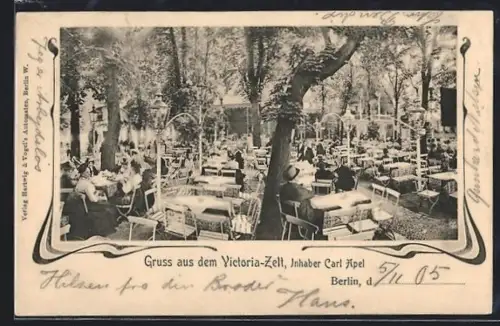 Gruss aus dem Victoria-Zelt, Inhaber Carl Apel
Berlin, d. 5/11 05
Hilsen fra din Broder
Hans.
Verlag Hartwig & Vogel's Automaten, Berlin W.
Jeg er Arbejdsløs